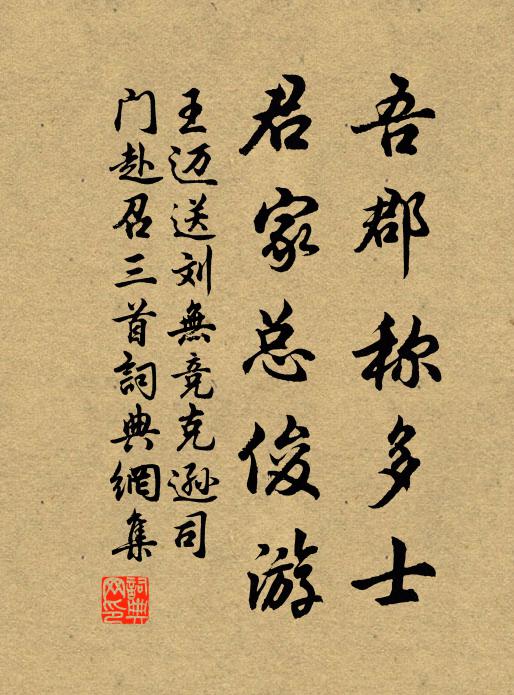 吾郡称多士
君家总俊游
王迈送刘無竞克逊司
门赴召三首詞典網集
詞典
网印